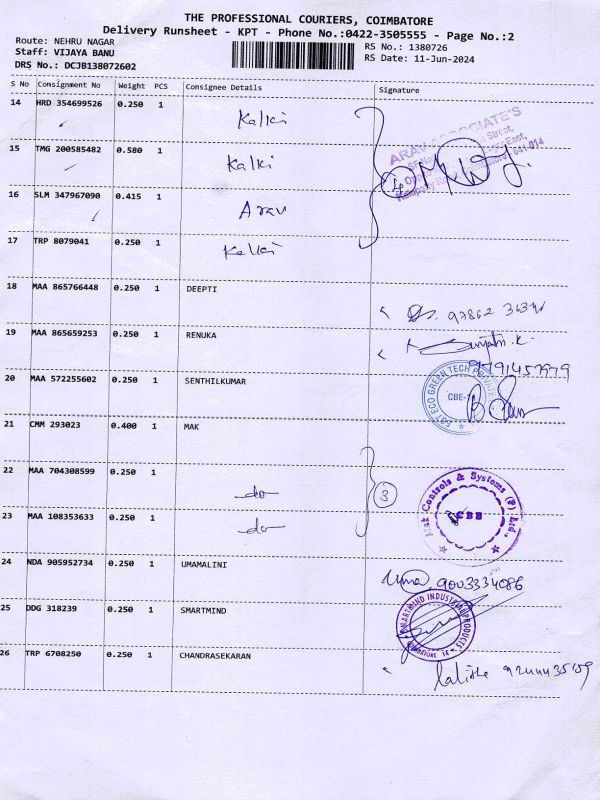 THE PROFESSIONAL COURIERS, COIMBATORE
Delivery Runsheet - KPT - Phone No.:0422-3505555 - Page No.:2
Route: NEHRU NAGAR RS No.: 1380726
Staff: VIJAYA BANU RS Date: 11-Jun-2024
DRS No.: DCJB138072602
S No Consignment No Weight PCS Consignee Details Signature
14 HRD 354699526 0.250 1 Kalki
ARAV ASSOCIATE'S
Street,
641-014
15 TMG 200585482 0.580 1 Kalki
4
16 SLM 347967090 0.415 1 Arav
17 TRP 8079041 0.250 1 Kalki
18 MAA 865766448 0.250 1 DEEPTI
19 MAA 865659253 0.250 1 RENUKA
9791457979
20 MAA 572255602 0.250 1 SENTHILKUMAR
ECO GREEN TECH
CBE-
21 CMM 293023 0.400 1 MAK
22 MAA 704308599 0.250 1 do
3
Mak Controls & Systems (P) Ltd.,
CBE
23 MAA 108353633 0.250 1 do
24 NDA 905952734 0.250 1 UMAMALINI
Uma 9003334086
25 DDG 318239 0.250 1 SMARTMIND
SMARTMIND INDUSTRIAL PRODUCTS
26 TRP 6708250 0.250 1 CHANDRASEKARAN